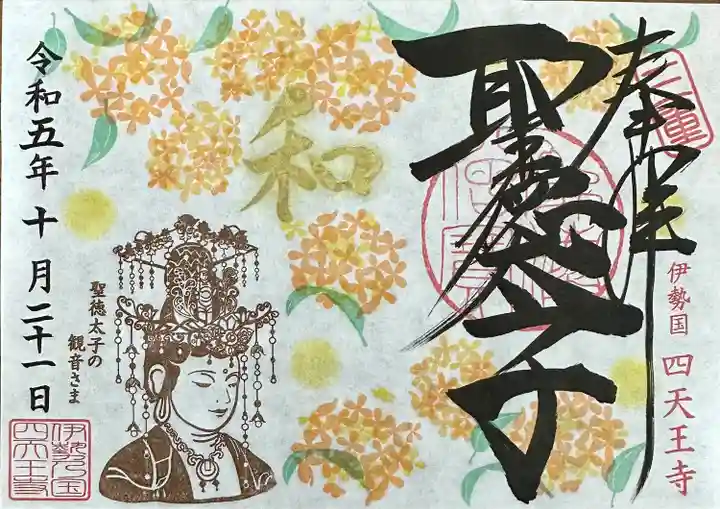 三重
奉拝
伊勢国 四天王寺
聖徳太子
和
聖徳太子の
観音さま
令和五年十月二十一日
伊勢乃国
四天王寺